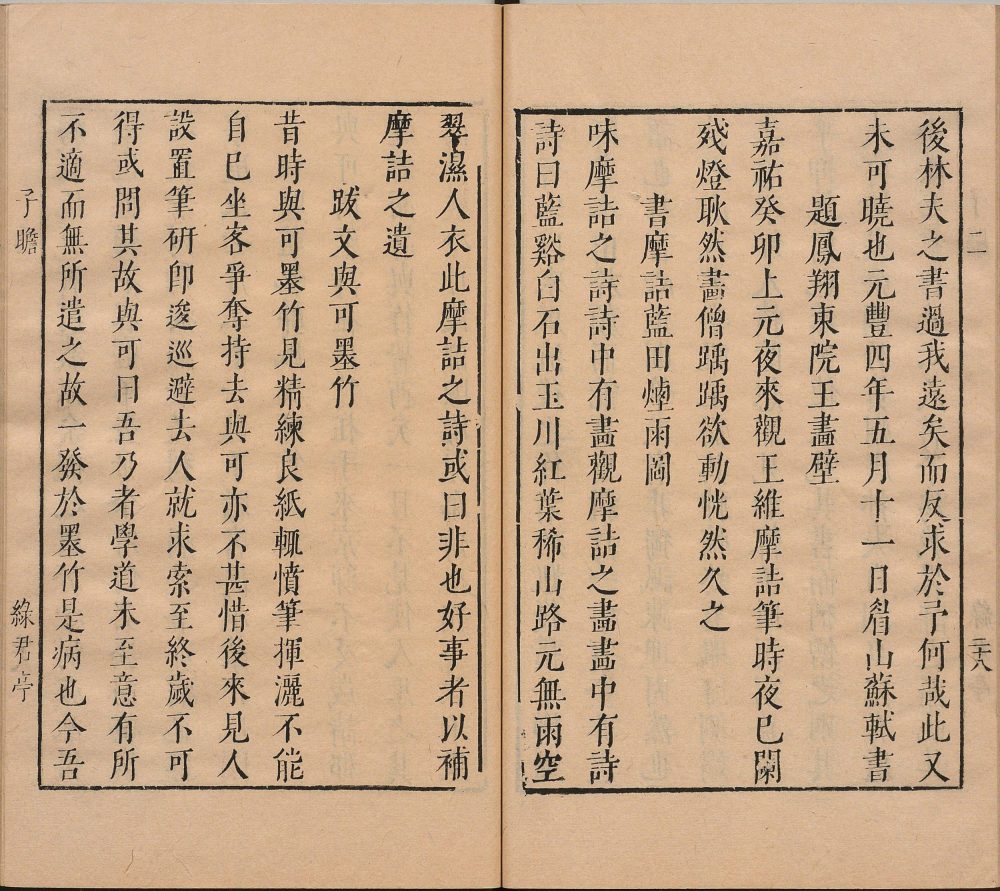 後林夫之書過我遠矣而反求於予何哉此又
未可曉也元豐四年五月十一日眉山蘇軾書
題鳳翔東院王畫壁
嘉祐癸卯上元夜來觀王維摩詰筆時夜已闌
殘燈耿然畫僧踽踽欲動恍然久之
書摩詰藍田煙雨圖
味摩詰之詩詩中有畫觀摩詰之畫畫中有詩
詩曰藍谿白石出玉川紅葉稀山路元無雨空
翠濕人衣此摩詰之詩或曰非也好事者以補
摩詰之遺
跋文與可墨竹
昔時與可墨竹見精練良紙輒憤筆揮灑不能
自已坐客爭奪持去與可亦不甚惜後來見人
設置筆研卽逡巡避去人就求索至終歲不可
得或問其故與可曰吾乃者學道未至意有所
不適而無所遣之故一發於墨竹是病也今吾
子瞻
綠君亭